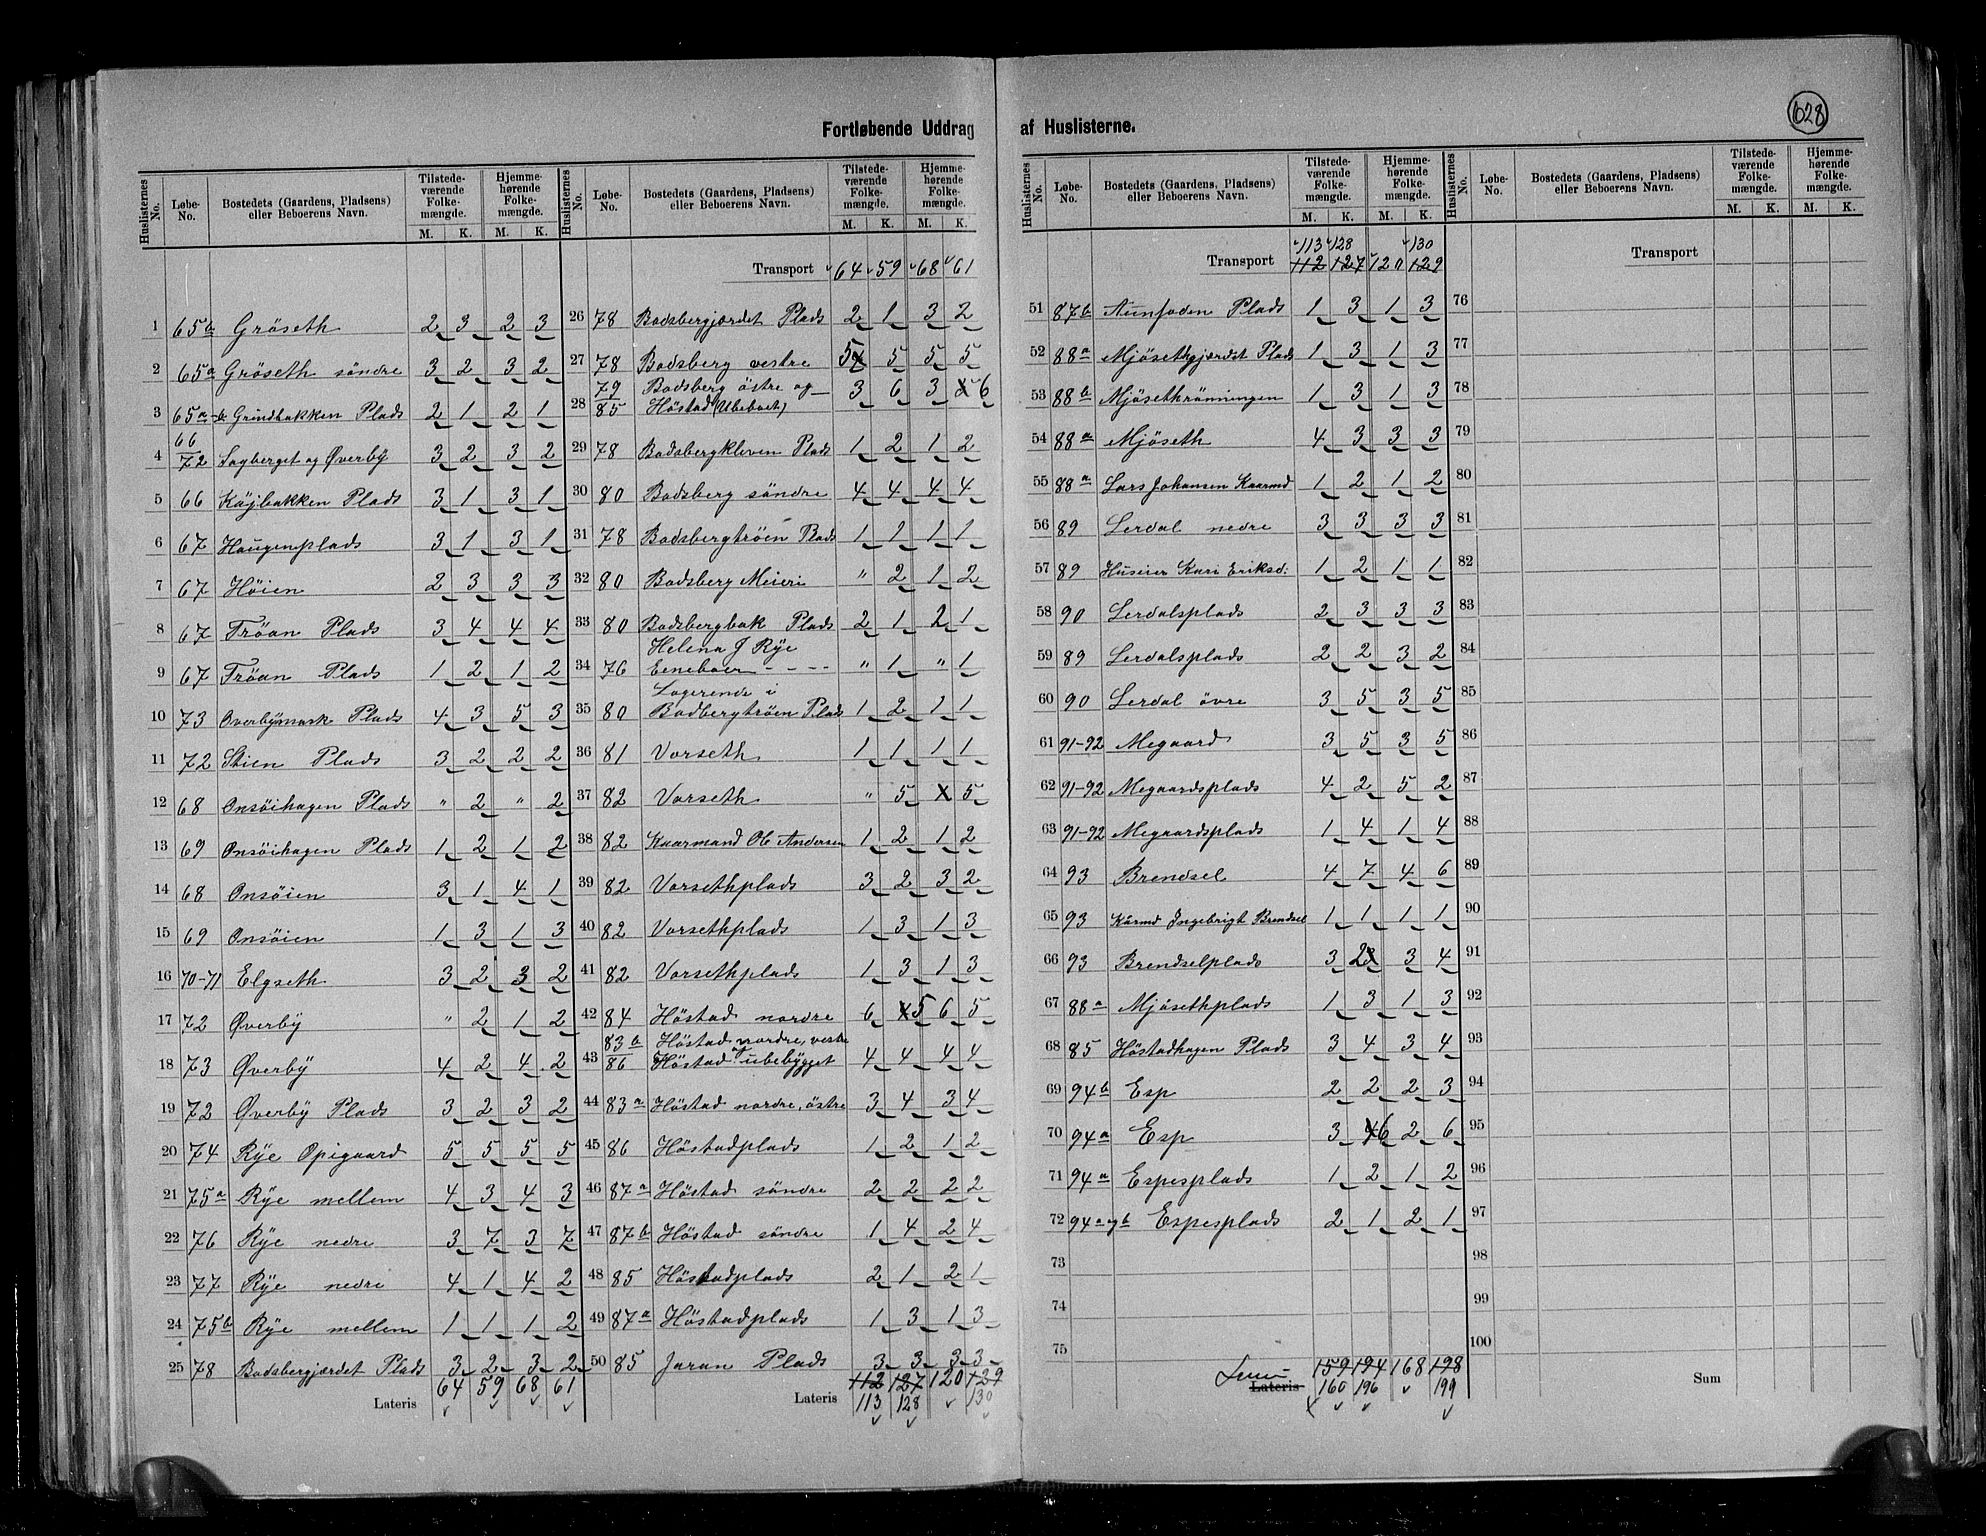 628
Fortløbende Uddrag af Huslisterne.
Huslisternes No. | Løbe-No. | Bostedets (Gaardens, Pladsens) eller Beboerens Navn. | Tilstedeværende Folkemængde. M. K. | Hjemmehørende Folkemængde. M. K.
1 65b Gröseth 2 3 2 3
2 65a Gröseth söndre 3 2 3 2
3 65a-b Grindbakken Plads 2 1 2 1
4 66/72 Sagberget og Øverby 3 2 3 2
5 66 Köjbakken Plads 3 1 3 1
6 67 Haugenplads 3 1 3 1
7 67 Höien 2 3 3 3
8 67 Tröan Plads 3 4 4 4
9 67 Tröan Plads 1 2 1 2
10 73 Överbymark Plads 4 3 5 3
11 72 Stien Plads 3 2 2 2
12 68 Onsöihagen Plads " 2 " 2
13 69 Onsöihagen Plads 1 2 1 2
14 68 Onsöien 3 1 4 1
15 69 Onsöien 1 3 1 3
16 70-71 Elgseth 3 2 3 2
17 72 Øverby " 2 1 2
18 73 Øverby 4 2 4 2
19 72 Øverby Plads 3 2 3 2
20 74 Rÿe Opigaard 5 5 5 5
21 75a Rÿe mellem 4 3 4 3
22 76 Rÿe nedre 3 7 3 7
23 77 Rÿe nedre 4 1 4 2
24 75b Rÿe mellem 1 1 1 2
25 78 Bodsbergjærdet Plads 3 2 3 2
Lateris 64 59 68 61
Huslisternes No. | Løbe-No. | Bostedets (Gaardens, Pladsens) eller Beboerens Navn. | Tilstedeværende Folkemængde. M. K. | Hjemmehørende Folkemængde. M. K.
Transport 64 59 68 61
26 78 Bodsbergjærdet Plads 2 1 3 2
27 78 Bodsberg vestre 5 5 5 5
28 79/85 Bodsberg östre og Höstad (Ubeboet) 3 6 3 6
29 78 Bodsbergkleven Plads 1 2 1 2
30 80 Bodsberg söndre 4 4 4 4
31 78 Bodsbergtröen Plads 1 1 1 1
32 80 Bodsberg Meieri " 2 1 2
33 80 Bodsbergbak Plads 2 1 2 1
34 76 Helena J Rÿe Eneboer " 1 " 1
35 80 Logerende i Bodbergtröen Plads 1 2 1 1
36 81 Vorseth 1 1 1 1
37 82 Vorseth " 5 x 5
38 82 Kaarmand Ol Andersen 1 2 1 2
39 82 Vorsethplads 3 2 3 2
40 82 Vorsethplads 1 3 1 3
41 82 Vorsethplads 1 3 1 3
42 84 Höstad nordre 6 5 6 5
43 83b/86 Höstad nordre, vestre og Höstad ubebygget 4 4 4 4
44 83a Höstad nordre, östre 3 4 3 4
45 86 Höstadplads 1 2 1 2
46 87a Höstad söndre 2 2 2 2
47 87b Höstad söndre 1 4 2 4
48 85 Höstadplads 2 1 2 1
49 87a Höstadplads 1 3 1 3
50 85 Jaran Plads 3 3 3 3
Lateris 112 127 120 129
113 128 130
Huslisternes No. | Løbe-No. | Bostedets (Gaardens, Pladsens) eller Beboerens Navn. | Tilstedeværende Folkemængde. M. K. | Hjemmehørende Folkemængde. M. K.
113 128 130
Transport 112 127 120 129
51 87b Plads 1 3 1 3
52 88a Mjösethgjærdet Plads 1 3 1 3
53 88b Mjösethrönningen 1 3 1 3
54 88a Mjöseth 4 3 3 3
55 88a Lars Johansen Kaarmd 1 2 1 2
56 89 Lerdal nedre 3 3 3 3
57 89 Huseier Kari Eriksd: 1 2 1 1
58 90 Lerdalsplads 2 3 3 3
59 89 Lerdalsplads 2 2 3 2
60 90 Lerdal övre 3 5 3 5
61 91-92 Megaard 3 5 3 5
62 91-92 Megaardsplads 4 2 5 2
63 91-92 Megaardsplads 1 4 1 4
64 93 Brendsel 4 7 4 6
65 93 Kårmd Ingebrigt Brendsel 1 1 1 1
66 93 Brendselplads 3 2 3 4
67 88a Mjösethplads 1 3 1 3
68 85 Höstadhagen Plads 3 4 3 4
69 94b Esp 2 2 2 3
70 94a Esp 3 6 2 6
71 94a Espesplads 1 2 1 2
72 94a og b Espesplads 2 1 2 1
73
74
75
Lateris 159 194 168 198
160 196 199
Huslisternes No. | Løbe-No. | Bostedets (Gaardens, Pladsens) eller Beboerens Navn. | Tilstedeværende Folkemængde. M. K. | Hjemmehørende Folkemængde. M. K.
Transport
76
77
78
79
80
81
82
83
84
85
86
87
88
89
90
91
92
93
94
95
96
97
98
99
100
Sum